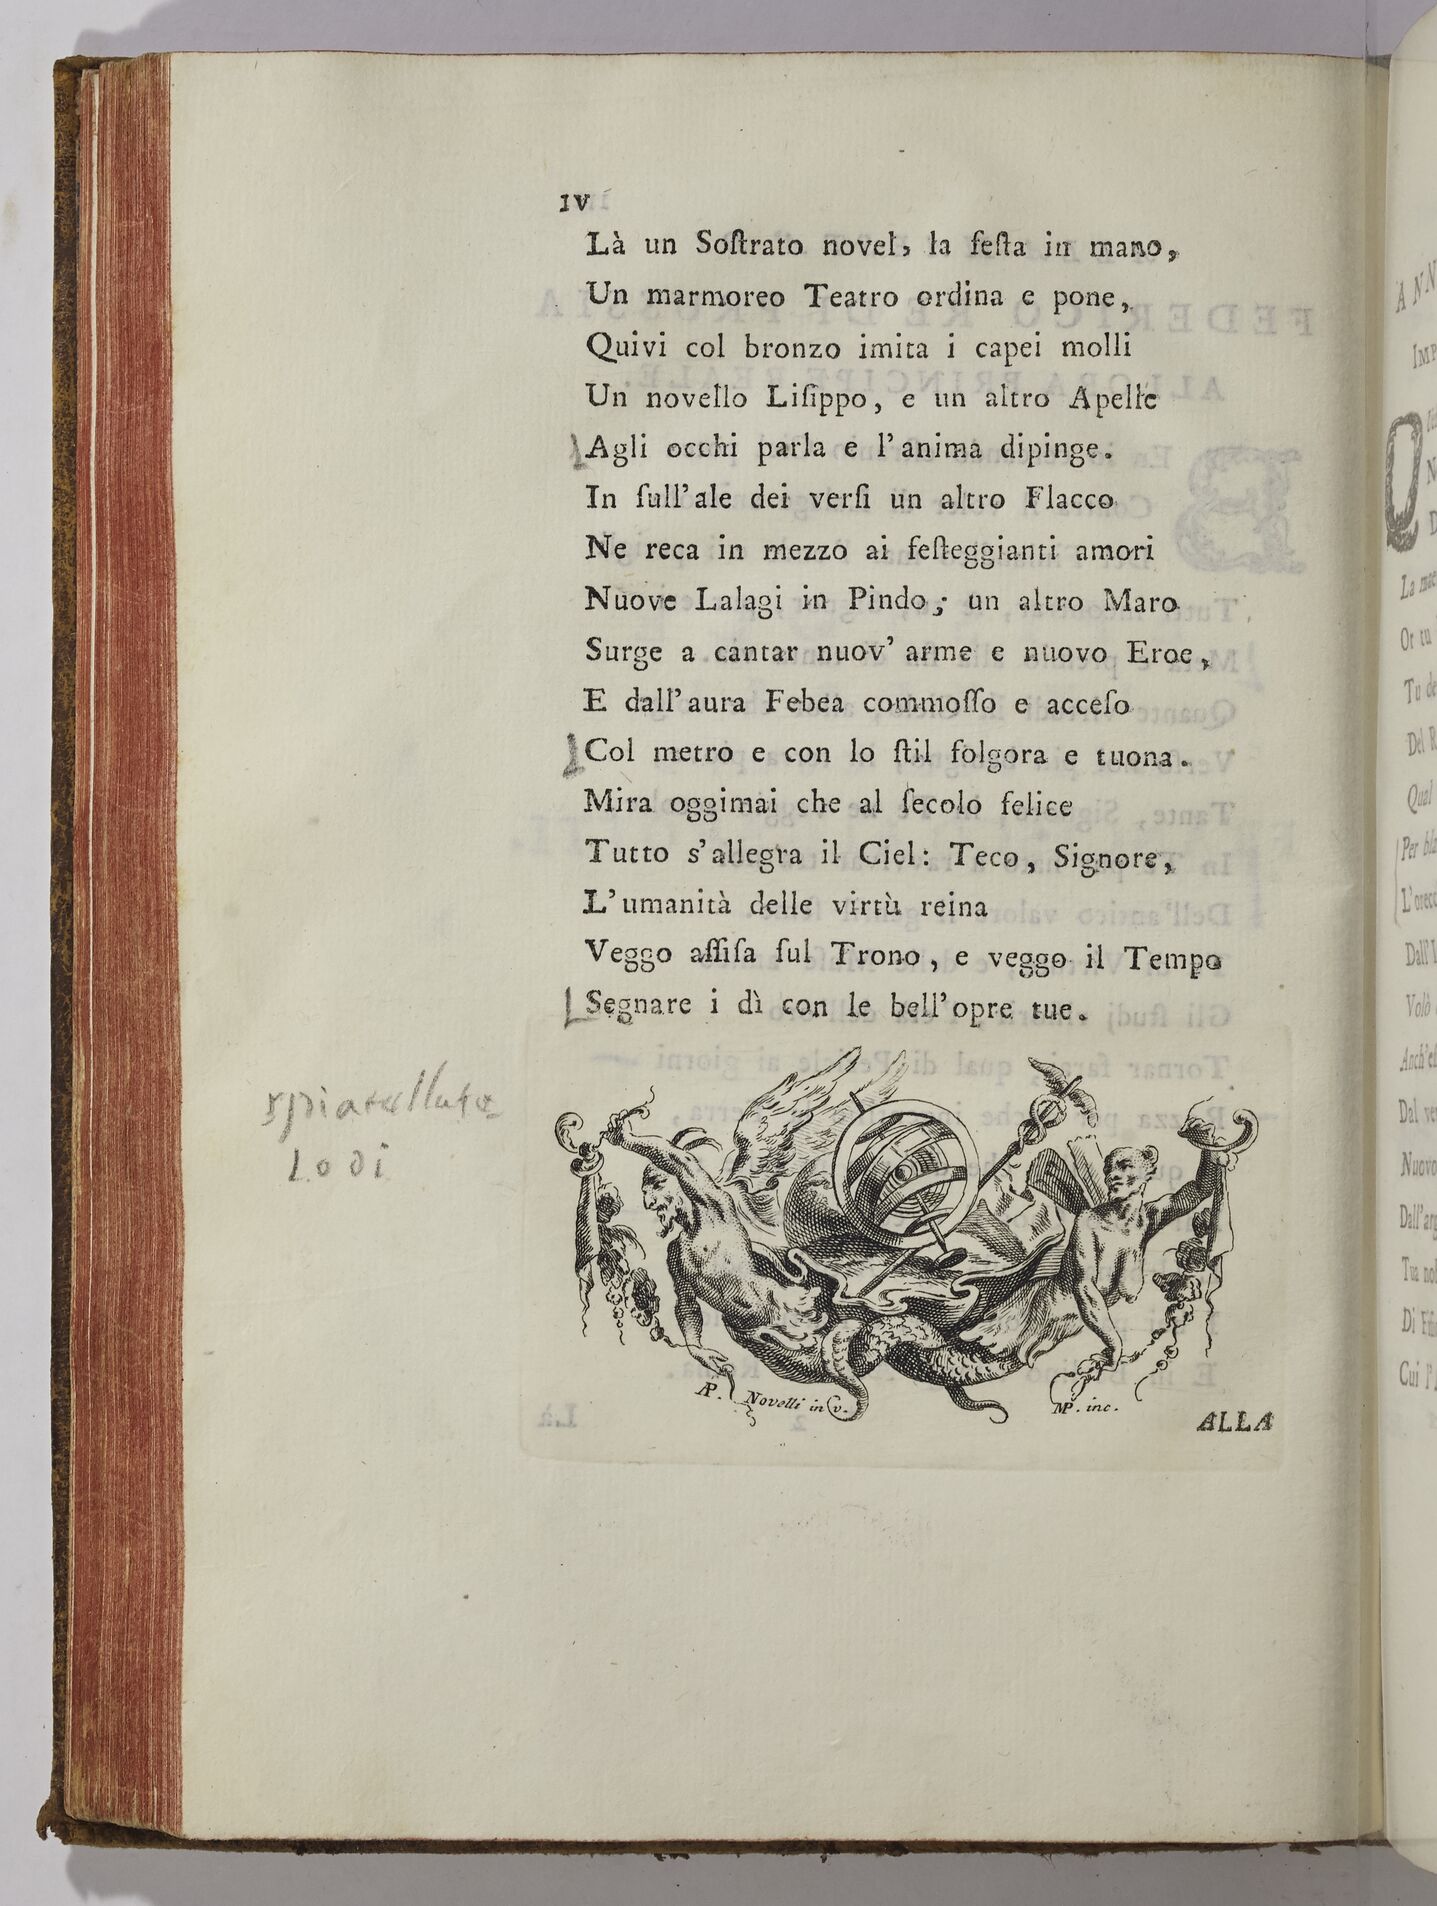 IV
Là un Soſtrato novel, la ſeſta in mano,
Un marmoreo Teatro ordina e pone,
Quivi col bronzo imita i capei molli
Un novello Liſippo, e un altro Apelle
Agli occhi parla e l'anima dipinge.
In ſull'ale dei verſi un altro Flacco
Ne reca in mezzo ai feſteggianti amori
Nuove Lalagi in Pindo; un altro Maro
Surge a cantar nuov' arme e nuovo Eroe,
E dall'aura Febea commoſſo e acceſo
Col metro e con lo ſtil folgora e tuona.
Mira oggimai che al ſecolo felice
Tutto s'allegra il Ciel: Teco, Signore,
L'umanità delle virtù reina
Veggo aſſiſa ſul Trono, e veggo il Tempo
Segnare i dì con le bell'opre tue.
spiatellate
lodi
AP. Novelli inv.
MP. inc.
ALLA
ANN
IMP
O
La mae
Or tu
Tu de
Del R
Qual
Per bla
L'orecc
Dall'I
Volò
Anch'eſ
Dal ver
Nuovo
Dall'arg
Tua nob
Cui l'